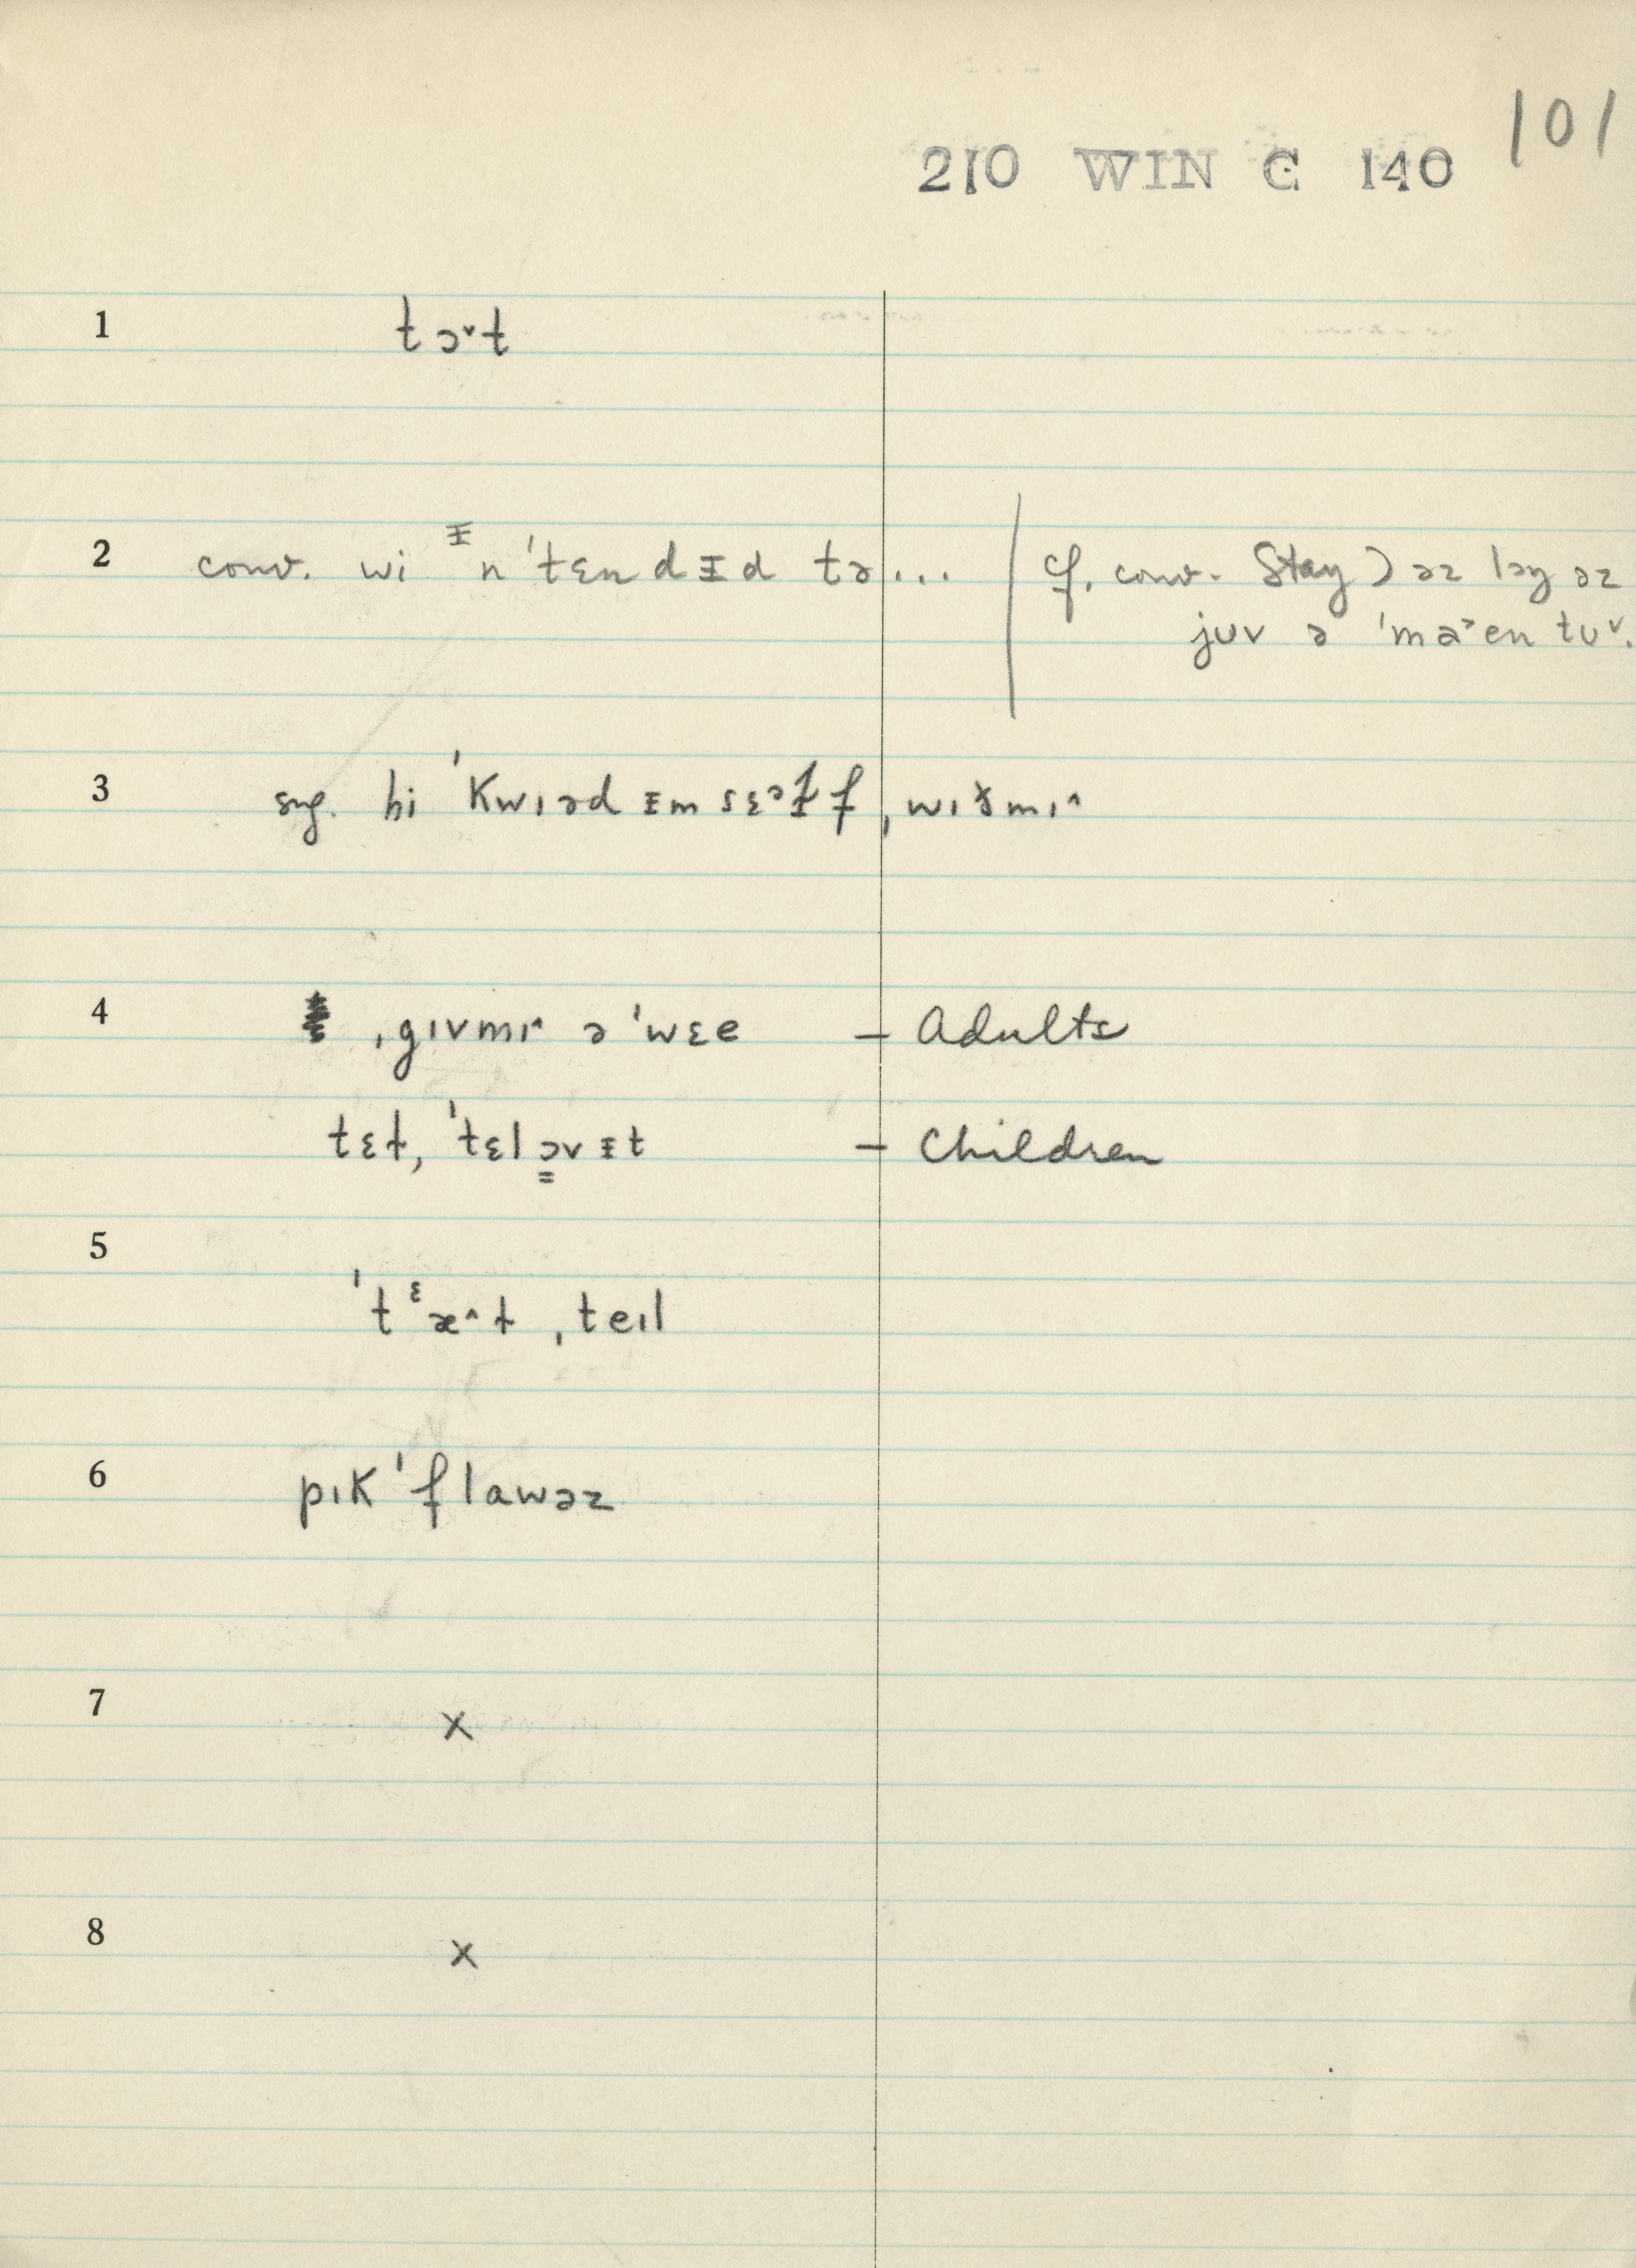 101
210 WIN C 140
1 tɔ˅t
2 conv. wi ᵻn 'tɛndᵻd tə... cf. conv. Stay) əz lɔŋ əz
jʊv ə 'maᵊen tʊ˅.
3 sug. hi 'kwɪəd ᵻm sɛᵊɫf ˌwɪðmɪ^
4 ˌgɪvmɪ^ ə 'wɛe – Adults
tɛt, 'tɛlə̳vᵻt – Children
5 'tᵋæ^t ˌteɪl
6 pɪk 'flawəz
7 x
8 x